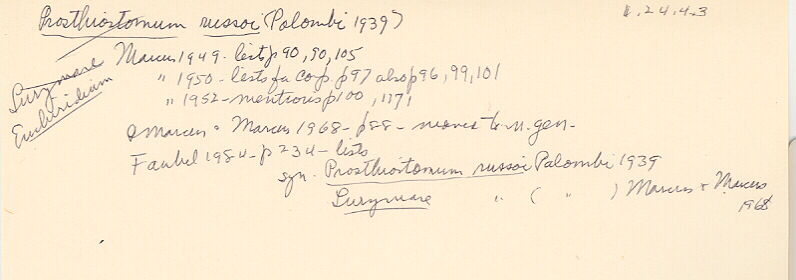 Prosthiostomum russoi (Palombi 1939)
1.24.4.3
Lurymare
Euchiridium
Marcus 1949 - lists p 90, 90, 105
" 1950 - lists p 97 also p 96, 99, 101
" 1952 - mentions p 100, 117
Marcus & Marcus 1968 - p 88 - moves to n. gen -
Faubel 1984 - p 234 - lists
syn. Prosthiostomum russoi Palombi 1939
Lurymare " ( " ) Marcus & Marcus 1968